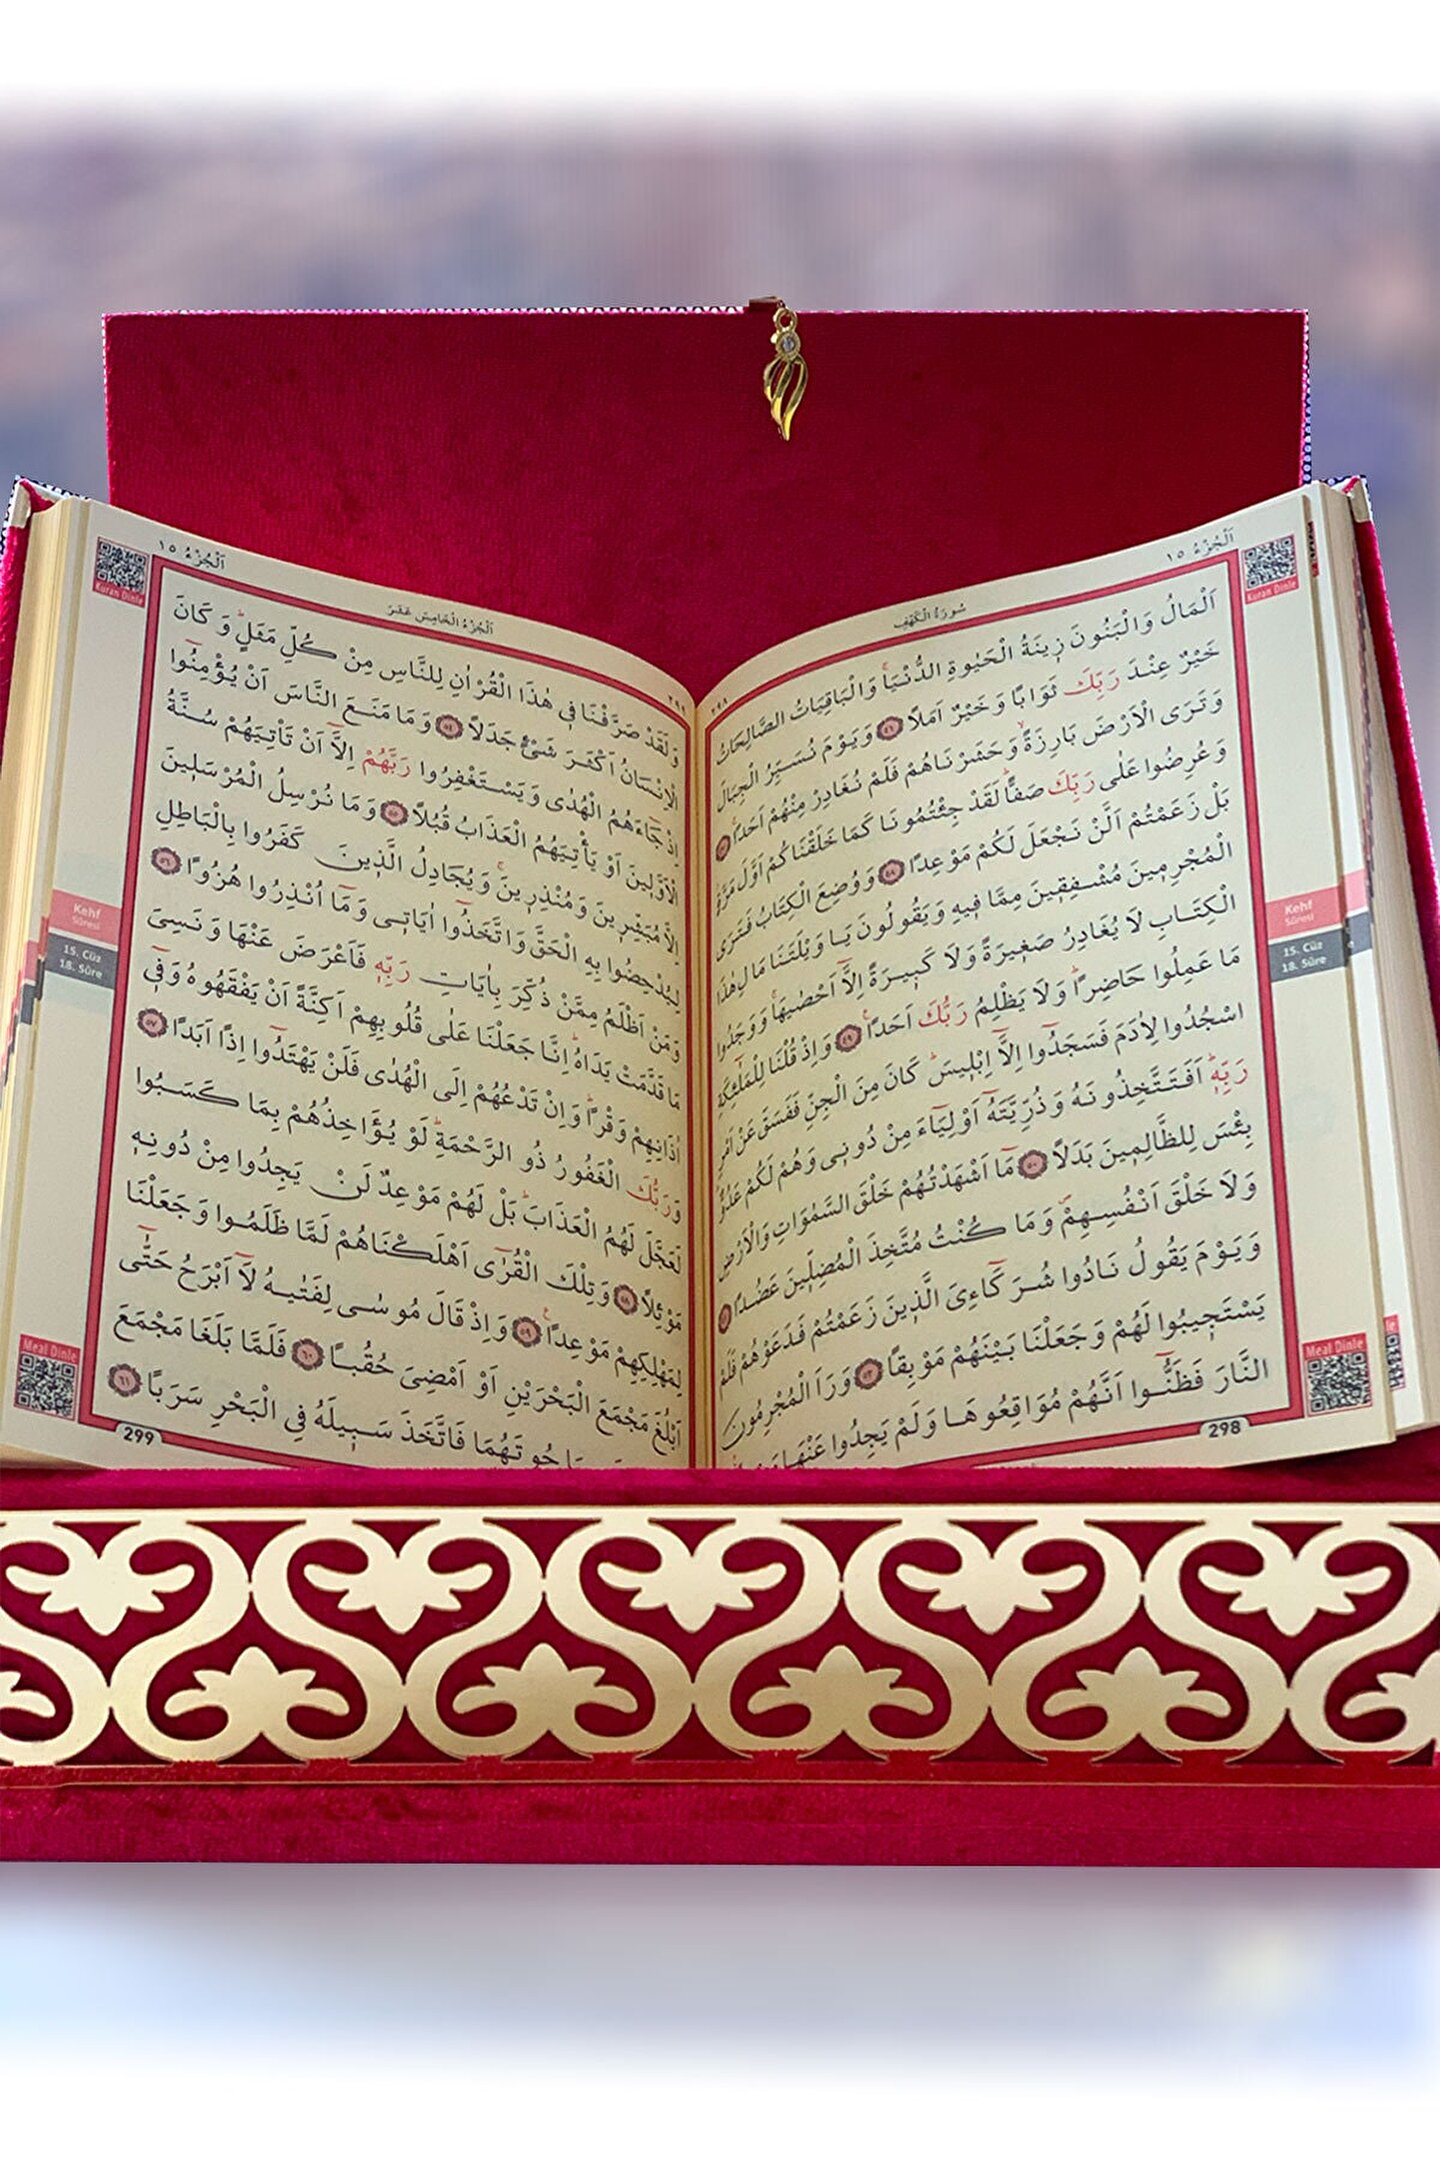 اَلْجُزْءُ ١٥
سُورَةُ الْكَهْفِ
٢٩٨
Kuran Dinle
اَلْمَالُ وَالْبَنُونَ زٖينَةُ الْحَيٰوةِ الدُّنْيَاۚ وَالْبَاقِيَاتُ الصَّالِحَاتُ
خَيْرٌ عِنْدَ رَبِّكَ ثَوَابًا وَخَيْرٌ اَمَلًا ﴿٤٦﴾ وَيَوْمَ نُسَيِّرُ الْجِبَالَ
وَتَرَى الْاَرْضَ بَارِزَةًۙ وَحَشَرْنَاهُمْ فَلَمْ نُغَادِرْ مِنْهُمْ اَحَدًاۚ ﴿٤٧﴾
وَعُرِضُوا عَلٰى رَبِّكَ صَفًّاؕ لَقَدْ جِئْتُمُونَا كَمَا خَلَقْنَاكُمْ اَوَّلَ مَرَّةٍۘ
بَلْ زَعَمْتُمْ اَلَّنْ نَجْعَلَ لَكُمْ مَوْعِدًا ﴿٤٨﴾ وَوُضِعَ الْكِتَابُ فَتَرَى
الْمُجْرِمٖينَ مُشْفِقٖينَ مِمَّا فٖيهِ وَيَقُولُونَ يَا وَيْلَتَنَا مَالِ هٰذَا
الْكِتَابِ لَا يُغَادِرُ صَغٖيرَةً وَلَا كَبٖيرَةً اِلَّٓا اَحْصٰيهَاۚ وَوَجَدُوا
مَا عَمِلُوا حَاضِرًاؕ وَلَا يَظْلِمُ رَبُّكَ اَحَدًاۚ ﴿٤٩﴾ وَاِذْ قُلْنَا لِلْمَلٰٓئِكَةِ
اسْجُدُوا لِاٰدَمَ فَسَجَدُٓوا اِلَّٓا اِبْلٖيسَؕ كَانَ مِنَ الْجِنِّ فَفَسَقَ عَنْ اَمْرِ
رَبِّهٖؕ اَفَتَتَّخِذُونَهُ وَذُرِّيَّتَهُٓ اَوْلِيَٓاءَ مِنْ دُونٖى وَهُمْ لَكُمْ عَدُوٌّؕ
بِئْسَ لِلظَّالِمٖينَ بَدَلًا ﴿٥٠﴾ مَٓا اَشْهَدْتُهُمْ خَلْقَ السَّمٰوَاتِ وَالْاَرْضِ
وَلَا خَلْقَ اَنْفُسِهِمْࣕ وَمَا كُنْتُ مُتَّخِذَ الْمُضِلّٖينَ عَضُدًا ﴿٥١﴾
وَيَوْمَ يَقُولُ نَادُوا شُرَكَٓاءِىَ الَّذٖينَ زَعَمْتُمْ فَدَعَوْهُمْ فَلَمْ
يَسْتَجٖيبُوا لَهُمْ وَجَعَلْنَا بَيْنَهُمْ مَوْبِقًا ﴿٥٢﴾ وَرَاَ الْمُجْرِمُونَ
النَّارَ فَظَنُّٓوا اَنَّهُمْ مُوَاقِعُوهَا وَلَمْ يَجِدُوا عَنْهَا
Kehf
Sûresi
15. Cüz
18. Sûre
Meal Dinle
298
اَلْجُزْءُ ١٥
اَلْجُزْءُ الْخَامِسَ عَشَرَ
٢٩٩
Kuran Dinle
وَلَقَدْ صَرَّفْنَا فٖى هٰذَا الْقُرْاٰنِ لِلنَّاسِ مِنْ كُلِّ مَثَلٍؕ وَكَانَ
الْاِنْسَانُ اَكْثَرَ شَىْءٍ جَدَلًا ﴿٥٤﴾ وَمَا مَنَعَ النَّاسَ اَنْ يُؤْمِنُٓوا
اِذْ جَٓاءَهُمُ الْهُدٰى وَيَسْتَغْفِرُوا رَبَّهُمْ اِلَّٓا اَنْ تَأْتِيَهُمْ سُنَّةُ
الْاَوَّلٖينَ اَوْ يَأْتِيَهُمُ الْعَذَابُ قُبُلًا ﴿٥٥﴾ وَمَا نُرْسِلُ الْمُرْسَلٖينَ
اِلَّا مُبَشِّرٖينَ وَمُنْذِرٖينَۚ وَيُجَادِلُ الَّذٖينَ كَفَرُوا بِالْبَاطِلِ
لِيُدْحِضُوا بِهِ الْحَقَّ وَاتَّخَذُٓوا اٰيَاتٖى وَمَٓا اُنْذِرُوا هُزُوًا ﴿٥٦﴾
وَمَنْ اَظْلَمُ مِمَّنْ ذُكِّرَ بِاٰيَاتِ رَبِّهٖ فَاَعْرَضَ عَنْهَا وَنَسِىَ
مَا قَدَّمَتْ يَدَاهُؕ اِنَّا جَعَلْنَا عَلٰى قُلُوبِهِمْ اَكِنَّةً اَنْ يَفْقَهُوهُ وَفٖٓى
اٰذَانِهِمْ وَقْرًاؕ وَاِنْ تَدْعُهُمْ اِلَى الْهُدٰى فَلَنْ يَهْتَدُٓوا اِذًا اَبَدًا ﴿٥٧﴾
وَرَبُّكَ الْغَفُورُ ذُو الرَّحْمَةِؕ لَوْ يُؤَاخِذُهُمْ بِمَا كَسَبُوا
لَعَجَّلَ لَهُمُ الْعَذَابَؕ بَلْ لَهُمْ مَوْعِدٌ لَنْ يَجِدُوا مِنْ دُونِهٖ
مَوْئِلًا ﴿٥٨﴾ وَتِلْكَ الْقُرٰٓى اَهْلَكْنَاهُمْ لَمَّا ظَلَمُوا وَجَعَلْنَا
لِمَهْلِكِهِمْ مَوْعِدًاۚ ﴿٥٩﴾ وَاِذْ قَالَ مُوسٰى لِفَتٰيهُ لَٓا اَبْرَحُ حَتّٰٓى
اَبْلُغَ مَجْمَعَ الْبَحْرَيْنِ اَوْ اَمْضِىَ حُقُبًا ﴿٦٠﴾ فَلَمَّا بَلَغَا مَجْمَعَ
حُوتَهُمَا فَاتَّخَذَ سَبٖيلَهُ فِى الْبَحْرِ سَرَبًا ﴿٦١﴾
Kehf
Sûresi
15. Cüz
18. Sûre
Meal Dinle
299